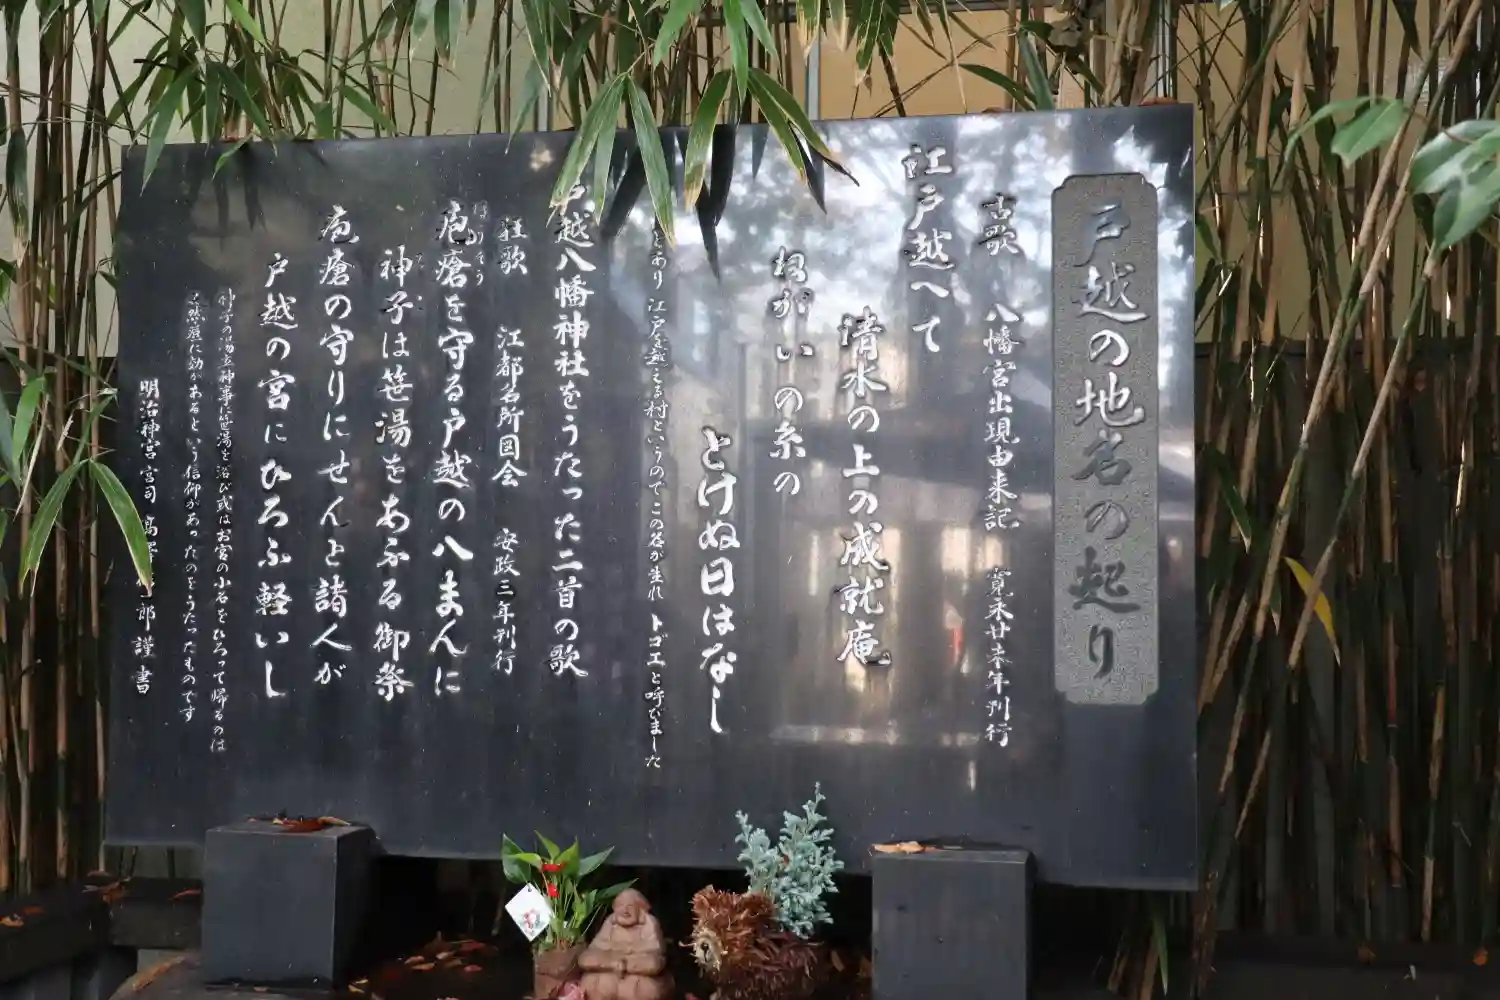 戸越の地名の起り
古歌 八幡宮出現由来記 寛永廿未年刊行
江戸越へて
清水の上の成就庵
ねがいの糸の
とけぬ日はなし
とあり 江戸を越える村というのでこの名が生れ トゴエと呼びました
戸越八幡神社をうたった二首の歌
狂歌 江都名所図会 安政三年刊行
疱瘡を守る戸越の八まんに
神子は笹湯をあふる御祭
疱瘡の守りにせんと諸人が
戸越の宮にひろふ軽いし
神子の湯立神事に笹湯を浴び或はお宮の小石をひろって帰るのは
天然痘に効があるという信仰があったのをうたったものです
明治神宮宮司 高 郎 謹書